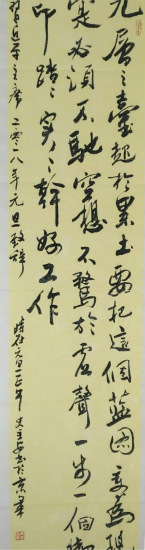 九層之臺起於累土要把這個藍圖變為現
實必須不馳空想不騖於虛聲一步一個腳
印踏踏實實幹好工作
習近平主席二零一八年元旦致辭
時在
於京華